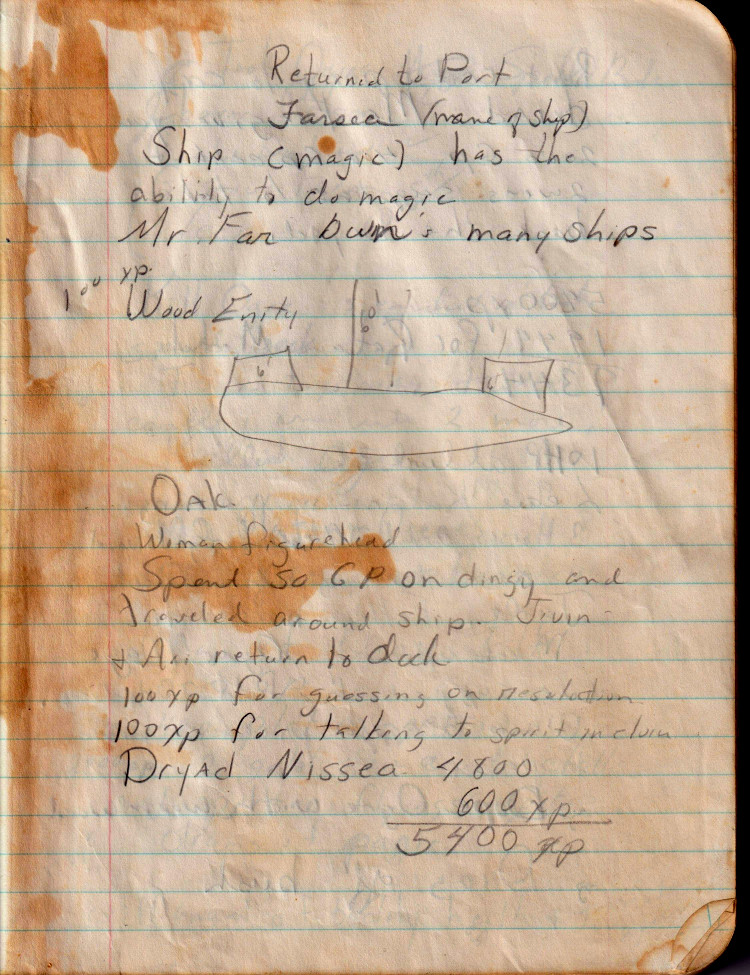 Returnid to Port
Farsea (name of ship)
Ship (magic) has the
ability to do magic
Mr. Far own's many ships
100 xp.
Wood Enity
10'
6'
6'
Oak
Woman figurehead
Spend 50 GP on dingy and
traveled around ship.
& Axi return to dock
100 xp for guessing on
100xp for talking to spirit in
DryAd Nissea 4800
600 xp
5400 xp